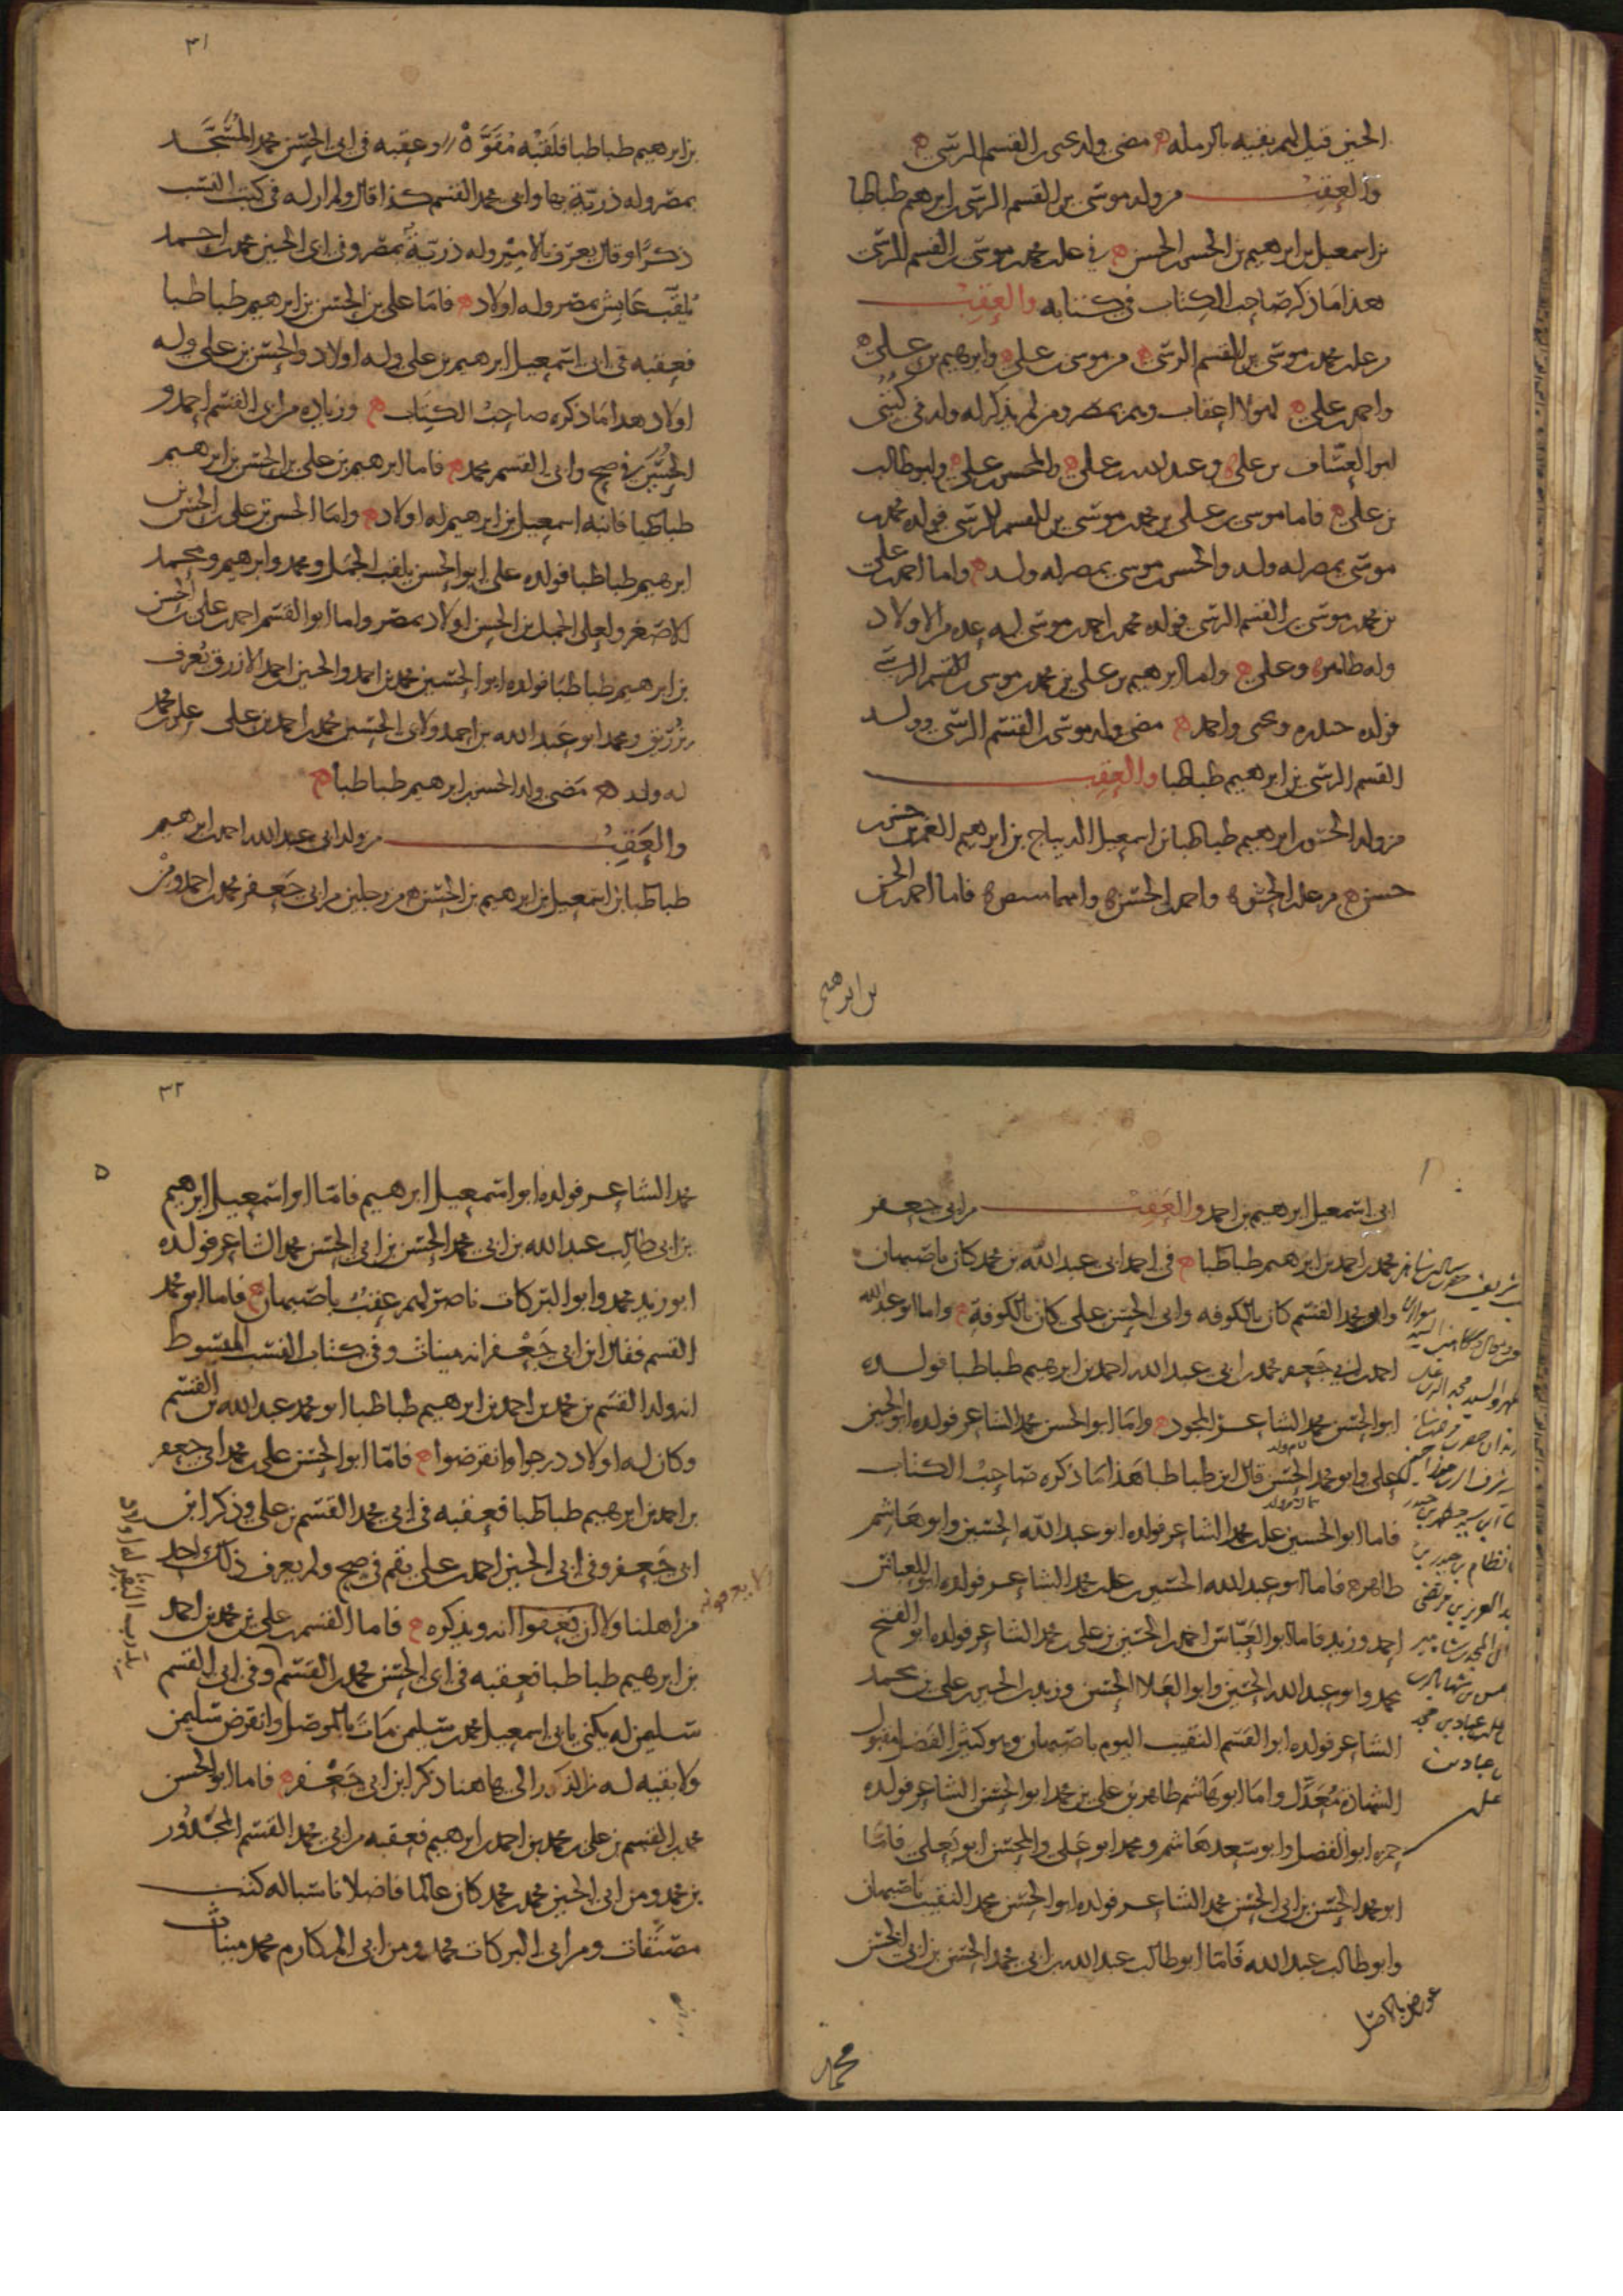 الحسين قيل لهم بقيه بالرمله ه مضى ولد يحيى بن القسم الرسى ه
والعقب من ولد موسى بن القسم الرسى بن ابرهيم طباطبا
بن اسمعيل بن ابرهيم بن الحسن بن الحسن ه فى على بن محمد بن موسى بن القسم الرسى
هذا ما ذكر صاحب الكتاب فى كتابه والعقب
من على بن محمد بن موسى بن القسم الرسى ه من موسى بن على ه وابرهيم بن على ه
واحمد بن على ه لهولا اعقاب وهم بمصر ومن لم يذكر له ولد فى كتبى
ابو العساف بن على ه وعبد الله بن على ه والمحسن بن على ه وابو طالب
بن على ه فاما موسى بن على بن محمد بن موسى بن القسم الرسى فولده محمد بن
موسى بمصر له ولد والحسن بن موسى بمصر له ولد ه واما احمد بن على
بن محمد بن موسى بن القسم الرسى فولده محمد بن احمد بن موسى له عده من الاولاد
وله طاهر ه وعلى ه واما ابرهيم بن على بن محمد بن موسى بن القسم الرسى
فولده حيدره ويحيى واحمد ه مضى ولد موسى بن القسم الرسى وولد
القسم الرسى بن ابرهيم طباطبا والعقب
من ولد الحسن بن ابرهيم طباطبا بن اسمعيل الديباج بن ابرهيم الغمر بن حسن بن
حسن ه من على بن الحسن ه واحمد بن الحسن ه فاما احمد بن الحسن
بن ابرهيم
٣١
بن ابرهيم طباطبا فلقبه متوه // وعقبه فى ابى الحسن محمد المستجد
بمصر وله ذرية بها وابى محمد القسم كذا قال ولم ار له فى كتب النسب
ذكرًا وقال يعرف بالامير وله ذرية بمصر وفى ابى الحسين محمد بن احمد
يلقب عايش بمصر وله اولاد ه فاما على بن الحسن بن ابرهيم طباطبا
فعقبه فى ابى اسمعيل ابرهيم بن على وله اولاد والحسن بن على وله
اولاد هذا ما ذكره صاحب الكتاب ه وزياده من ابى القسم احمد و
الحسين فى صح وابى القسم محمد ه فاما ابرهيم بن على بن الحسن بن ابرهيم
طباطبا فابنه اسمعيل بن ابرهيم له اولاد ه واما الحسن بن على بن الحسن بن
ابرهيم طباطبا فولده على ابو الحسن يلقب الجمل ومحمد وابرهيم ومحمد
الاصغر ولعلى الجمل بن الحسن اولاد بمصر واما ابو القسم احمد بن على بن الحسن
بن ابرهيم طباطبا فولده ابو الحسين محمد بن احمد والحسين بن احمد الازرق يعرف
بزريق ومحمد ابو عبد الله بن احمد ولابى الحسين محمد بن احمد بن على على بن محمد
له ولد ه مضى ولد الحسن بن ابرهيم طباطبا ه
والعقب من ولد ابى عبد الله احمد بن ابرهيم
طباطبا بن اسمعيل بن ابرهيم بن الحسن ه من رجلين من ابى جعفر محمد بن احمد ومن
ابى اسمعيل ابرهيم بن احمد والعقب من ابى جعفر
محمد بن احمد بن ابرهيم طباطبا ه فى احمد ابى عبد الله بن محمد كان باصبهان
وابو محمد القسم كان بالكوفه وابى الحسن على كان بالكوفة ه واما ابو عبد الله
احمد بن ابى جعفر محمد بن ابى عبد الله احمد بن ابرهيم طباطبا فولده
ابو الحسن محمد الشاعر المجود ه واما ابو الحسن محمد الشاعر فولده ابو الحسين
على وابو محمد الحسن قال ابن طباطبا هذا ما ذكره صاحب الكتاب
فاما ابو الحسين على بن محمد الشاعر فولده ابو عبد الله الحسين وابو هاشم
طاهر ه فاما ابو عبد الله الحسين بن على بن محمد الشاعر فولده ابو العباس
احمد وزيد فاما ابو العباس احمد بن الحسين بن على بن محمد الشاعر فولده ابو الفتح
محمد وابو عبد الله الحسين وابو العلا الحسن وزيد بن الحسين بن على بن محمد
الشاعر فولده ابو القسم النقيب اليوم باصبهان وهو كثير الفضل مقبول
الشهادة معدل واما ابو هاشم طاهر بن على بن محمد ابو الحسن الشاعر فولده
حمزه ابو الفضل وابو سعد هاشم ومحمد ابو على والمحسن ابو يعلى فاما
ابو محمد الحسن بن ابى الحسن محمد الشاعر فولده ابو الحسن محمد النقيب باصبهان
وابو طالب عبد الله فاما ابو طالب عبد الله بن ابى محمد الحسن بن ابى الحسن
عورض بالاصل
محمد
٣٢
محمد الشاعر فولده ابو اسمعيل ابرهيم فاما ابو اسمعيل ابرهيم
بن ابى طالب عبد الله بن ابى محمد الحسن بن ابى الحسن محمد الشاعر فولده
ابو زيد محمد وابو البركات ناصر لهم عقب باصبهان ه فاما ابو محمد
القسم فقال ابن ابى جعفر انه ميناث وفى كتاب النسب المبسوط
انه ولد القسم بن محمد بن احمد بن ابرهيم طباطبا ابو محمد عبد الله بن القسم
وكان له اولاد درجوا وانقرضوا ه فاما ابو الحسن على بن محمد ابى جعفر
بن احمد بن ابرهيم طباطبا فعقبه فى ابى محمد القسم بن على وذكر ابن
ابى جعفر وفى ابى الحسين احمد بن على بقم فى صح ولم يعرف ذلك احد
من اهلنا ولا ان يعرفوا انه ويذكره ه فاما القسم بن على بن محمد بن احمد
بن ابرهيم طباطبا فعقبه فى ابى الحسن محمد بن القسم وفى ابى القسم
سليمن له يكنى بابى اسمعيل محمد بن سليمن مات بالموصل وانقرض سليمن
ولا بقيه له من الذكور الى هاهنا ذكر ابن ابى جعفر ه فاما ابو الحسن
محمد بن القسم بن على بن محمد بن احمد بن ابرهيم فعقبه من ابى محمد القسم المجدور
بن محمد ومن ابى الحسين محمد بن محمد كان عالما فاضلا ناسبا له كتب
مصنفات ومن ابى البركات محمد ومن ابى المكارم محمد ميناث